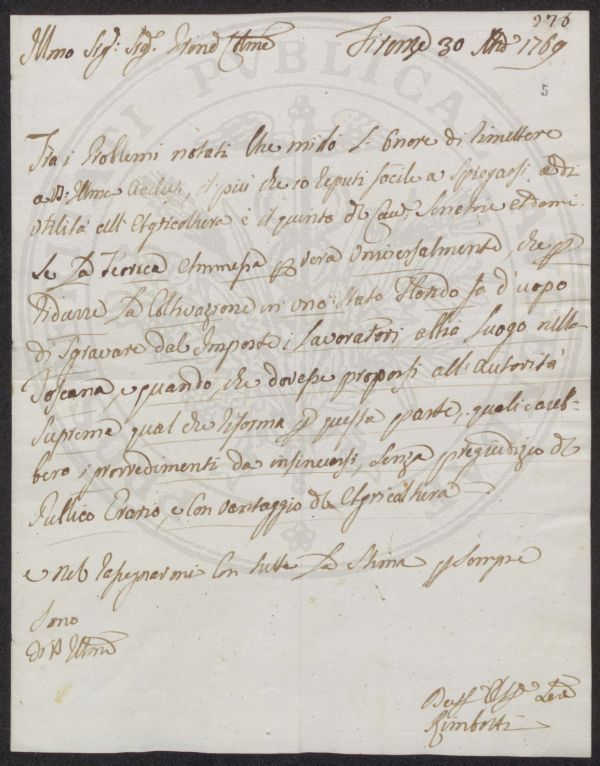 276
Illmo Sig: Sig. Pione Colmo Firenze 30 Xbre 1769
5
Tra i Problemi notati che mi dò l'onore di rimettere
a V: Illma acclusi, il più che io reputi facile a spiegarsi, e di
Utilità all'Agricoltura è il quinto
Se La Teorica ammessa p vera Universalmente, che p
ridurre La Coltivazione in uno Stato Florido fa d'uopo
di Sgravare dal Imposte i Lavoratori abbia Luogo nella
Toscana, e quando, che dovesse proporsi all'Autorità
Suprema qual che riforma p questa parte, quali sareb-
bero i provvedimenti da insinuarsi, Senza pregiudizio del
Pubblico Erario, e Con vantaggio dell Agricoltura
e nel rassegnarmi Con tutta La Stima p sempre
Sono
Di V Illma
Rimbotti